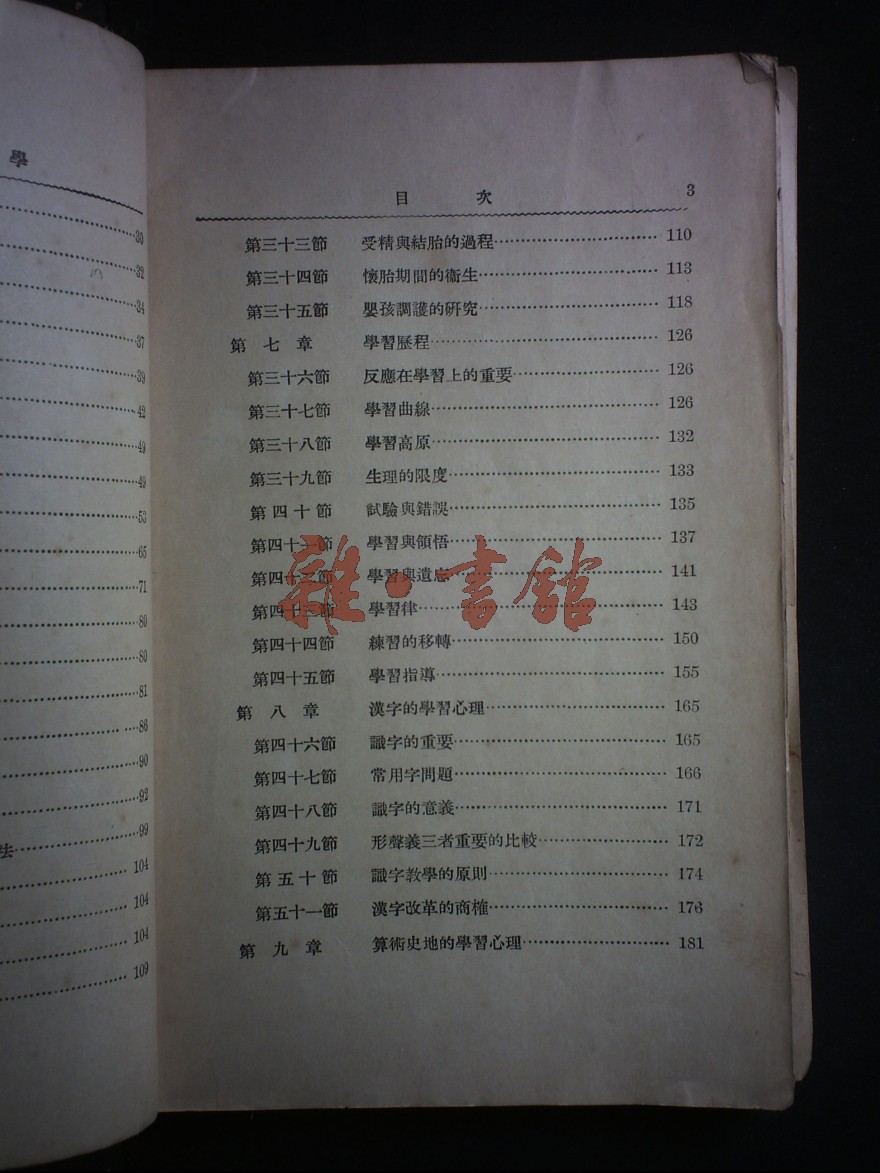 學
30
32
34
37
39
42
49
49
53
65
71
80
80
81
86
90
92
法 99
104
104
104
109
目 次 3
第三十三節 受精與結胎的過程 110
第三十四節 懷胎期間的衞生 113
第三十五節 嬰孩調護的研究 118
第七章 學習歷程 126
第三十六節 反應在學習上的重要 126
第三十七節 學習曲線 126
第三十八節 學習高原 132
第三十九節 生理的限度 133
第四十節 試驗與錯誤 135
第四十一節 學習與領悟 137
第四十二節 學習與遺忘 141
第四十三節 學習律 143
第四十四節 練習的移轉 150
第四十五節 學習指導 155
第八章 漢字的學習心理 165
第四十六節 識字的重要 165
第四十七節 常用字問題 166
第四十八節 識字的意義 171
第四十九節 形聲義三者重要的比較 172
第五十節 識字教學的原則 174
第五十一節 漢字改革的商榷 176
第九章 算術史地的學習心理 181
雜·書館